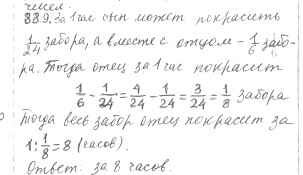 чисел.
889. За 1 час сын может покрасить
1/24 забора, а вместе с отцом - 1/6 забо-
ра. Тогда отец за 1 час покрасит
1/6 - 1/24 = 4/24 - 1/24 = 3/24 = 1/8 забора
Тогда весь забор отец покрасит за
1 : 1/8 = 8 (часов).
Ответ. за 8 часов.